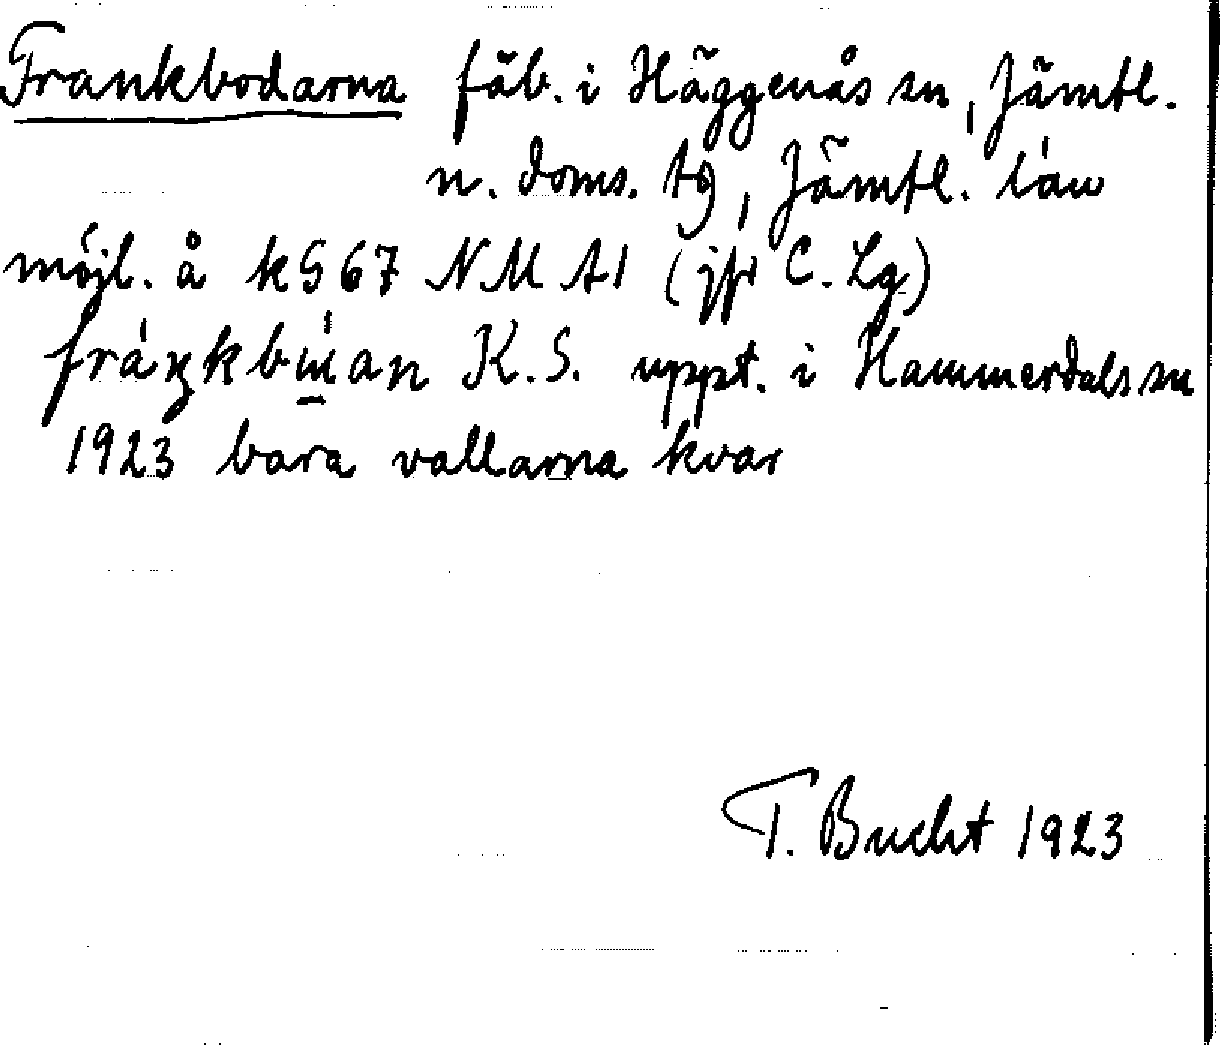 Frankbodarna fäb. i Häggenås sn, Jämtl.
n. doms. tg, Jämtl. län
möjl. å k§ 67 NM A1 (jfr C. Lg)
K.S. uppt. i Hammerdals sn
1923 bara vallarna kvar
T. Bucht 1923